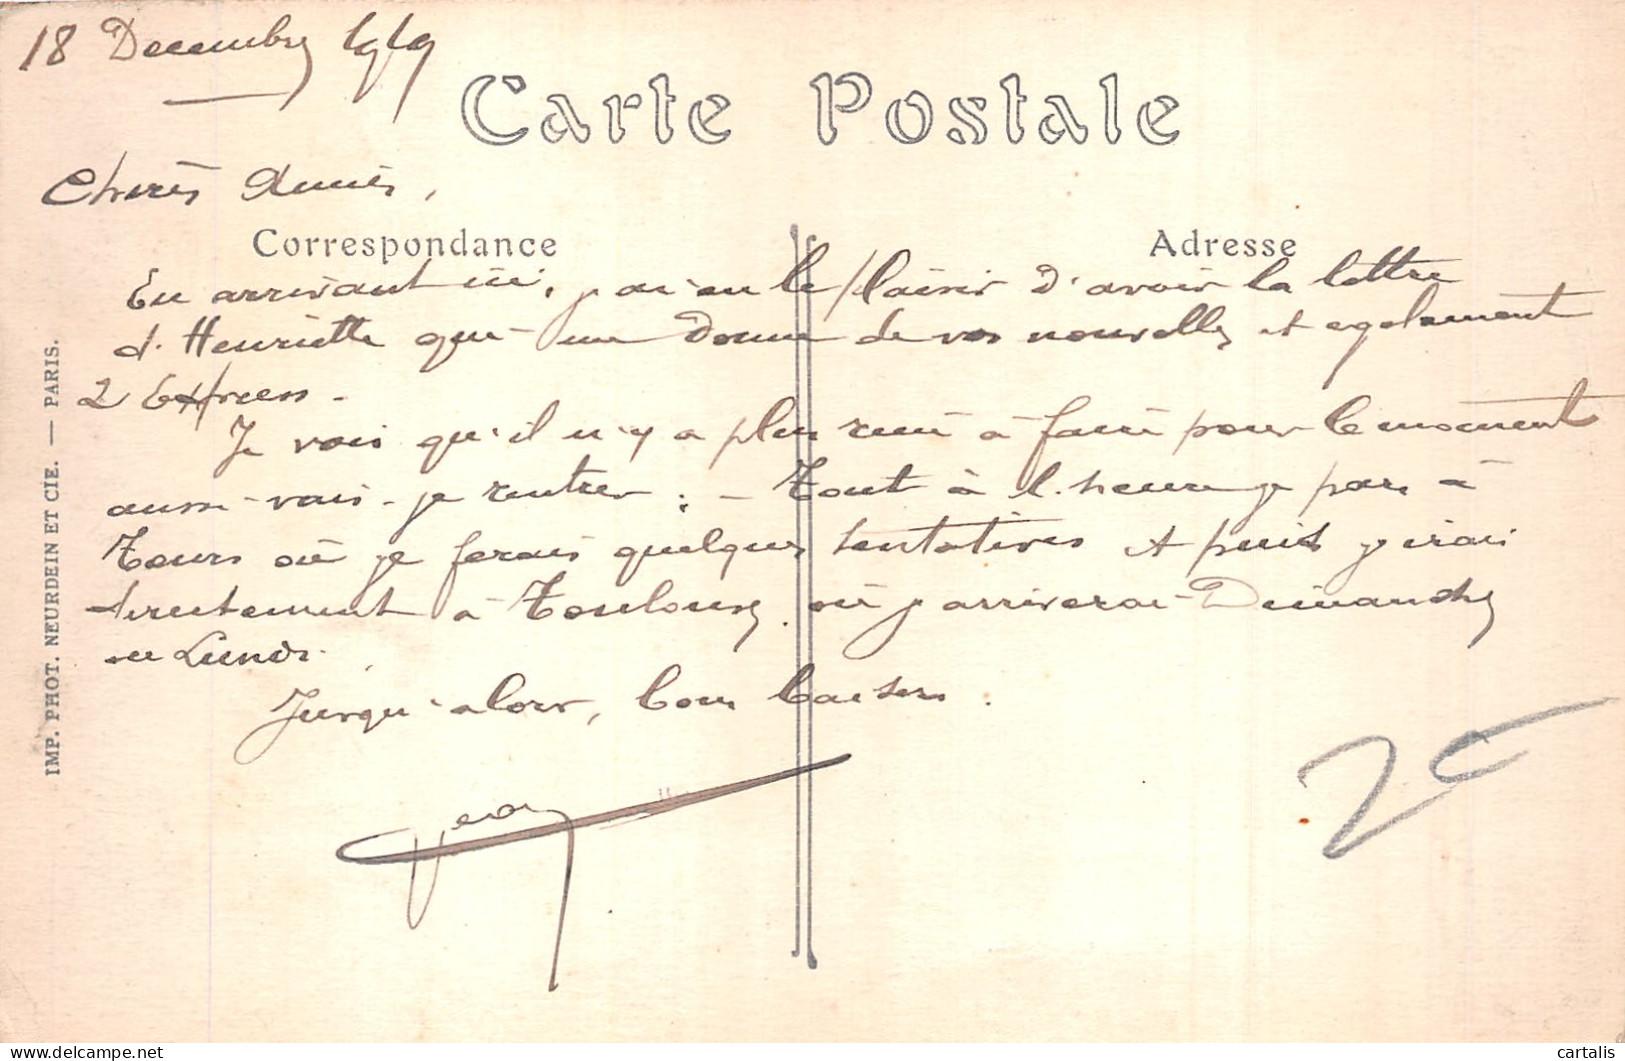 18 Decembre 1919
Carte Postale
Chères Amies,
Correspondance
Adresse
En arrivant ici, j'ai eu le plaisir d'avoir la lettre
d'Henriette qui me donne de vos nouvelles et egalement
2 Express.
Je vois qu'il n'y a plus rien à faire pour le moment
aussi vais-je rentrer. - Tout à l'heure je pars à
Tours où je ferais quelques tentatives et puis j'irai
directement à Toulouse où j'arriverai Dimanche
ou Lundi.
Jusqu'alors, bons baisers.
IMP. PHOT. NEURDEIN ET CIE. — PARIS.
cartalis